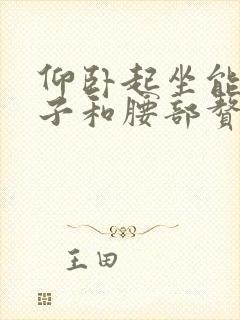 仰卧起坐能
子和腰部赘
王田